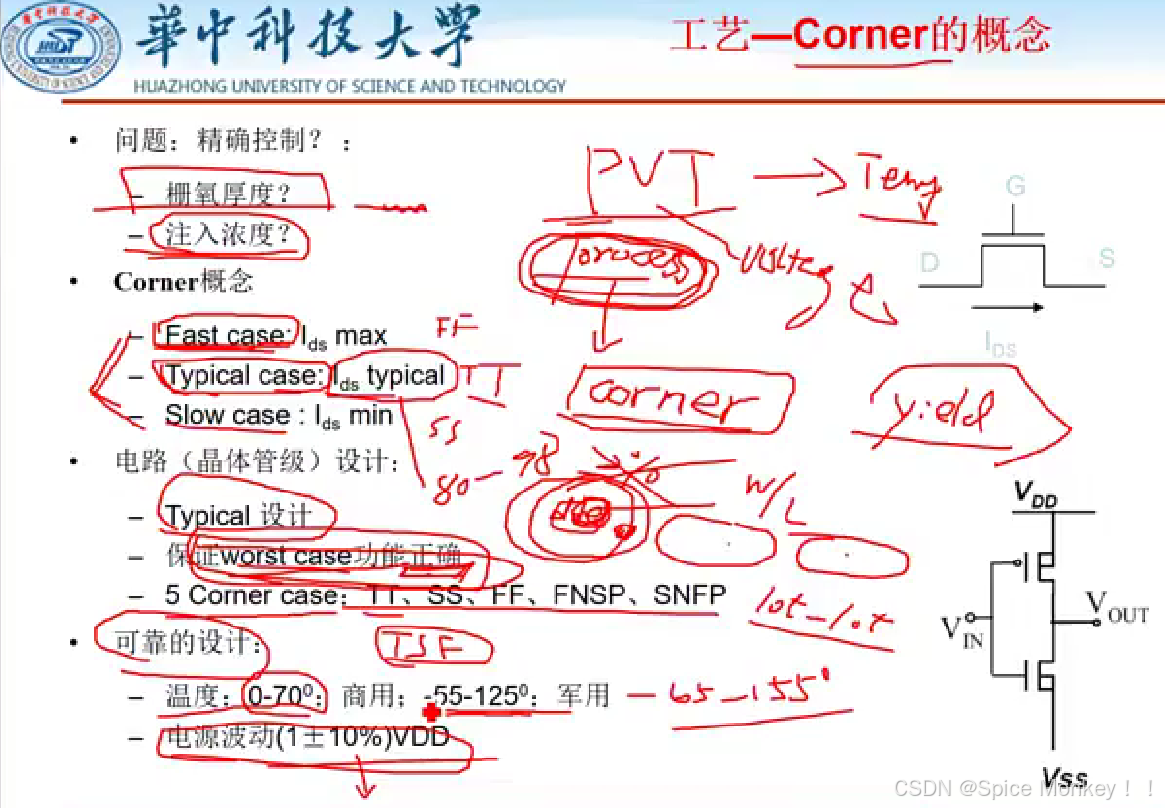 華中科技大学
HUAZHONG UNIVERSITY OF SCIENCE AND TECHNOLOGY
工艺—Corner的概念
• 问题：精确控制？：
– 栅氧厚度？
– 注入浓度？
• Corner概念
– Fast case: Ids max FF
– Typical case: Ids typical TT
– Slow case : Ids min
SS
PVT → Temp
process
corner
yield
G
D S
IDS
• 电路（晶体管级）设计：
80-98 %
W/L
– Typical 设计
– 保证worst case功能正确
– 5 Corner case：TT、SS、FF、FNSP、SNFP
lot-lot
• 可靠的设计：
– 温度：0-70⁰：商用；-55-125⁰：军用 -65-155°
– 电源波动(1±10%)VDD
VDD
VIN VOUT
Vss
CSDN @Spice Monkey！！